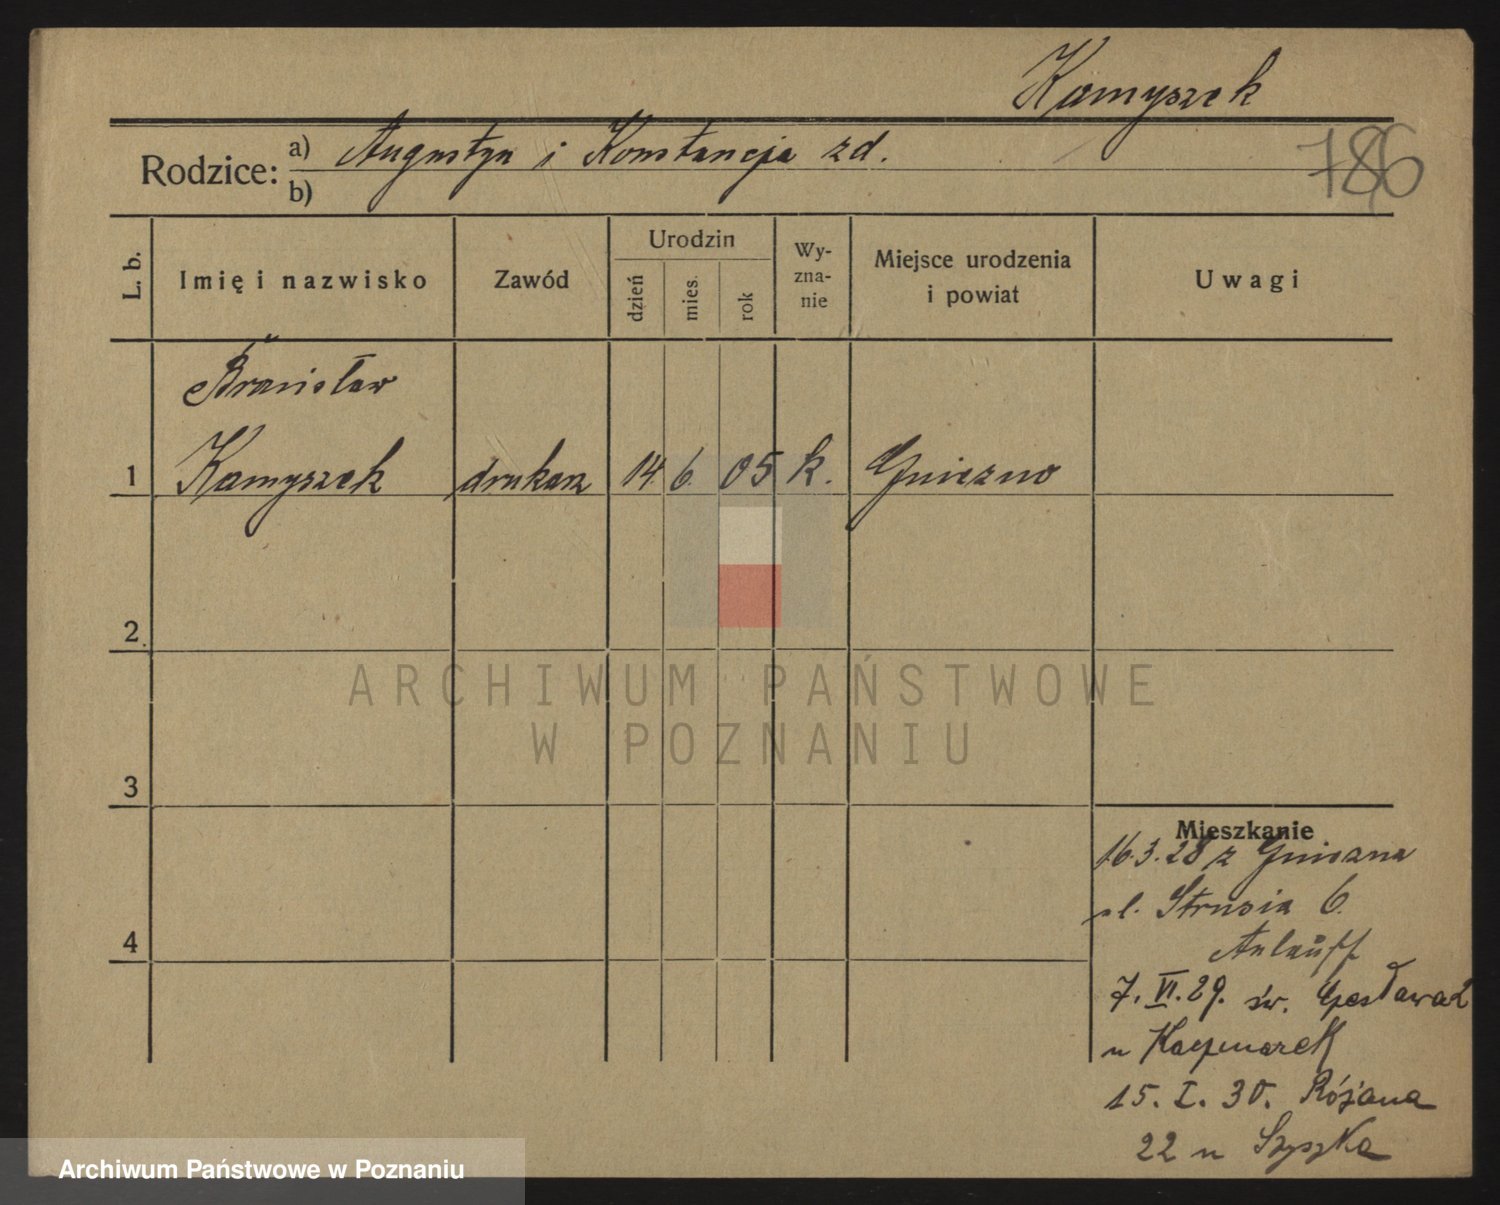 Kamyszek
Rodzice: a) Augustyn i Konstancja zd.
b)
786
L. b. Imię i nazwisko Zawód Urodzin dzień mies. rok Wy-zna-nie Miejsce urodzenia i powiat Uwagi
Bronisław
1 Kamyszek drukarz 14. 6. 05 k. Gniezno
2.
3
4
ARCHIWUM PAŃSTWOWE
W POZNANIU
Mieszkanie
16.3.28 z Gniezna
ul. Strusia 6.
Anlauff
7. VI. 29. św. Czesława 2
u Kaczmarek
15. I. 30. Różana
22 u Szyszka
Archiwum Państwowe w Poznaniu